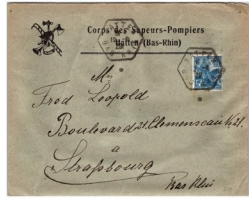 Corps des Sapeurs-Pompiers
Hatten (Bas-Rhin)
HATTEN
Mr
Fred Leopold
Boulevard Clemenceau
à
Strassbourg
Bas Rhin